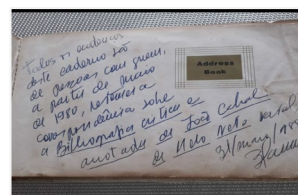 Todos os endereços
deste caderno são
de pessoas com quem,
a partir de maio
de 1980, retomei a
correspondência sobre
a Bibliografia crítica e
anotada de João Cabral
de Melo Neto
31/março/198
Address
Book